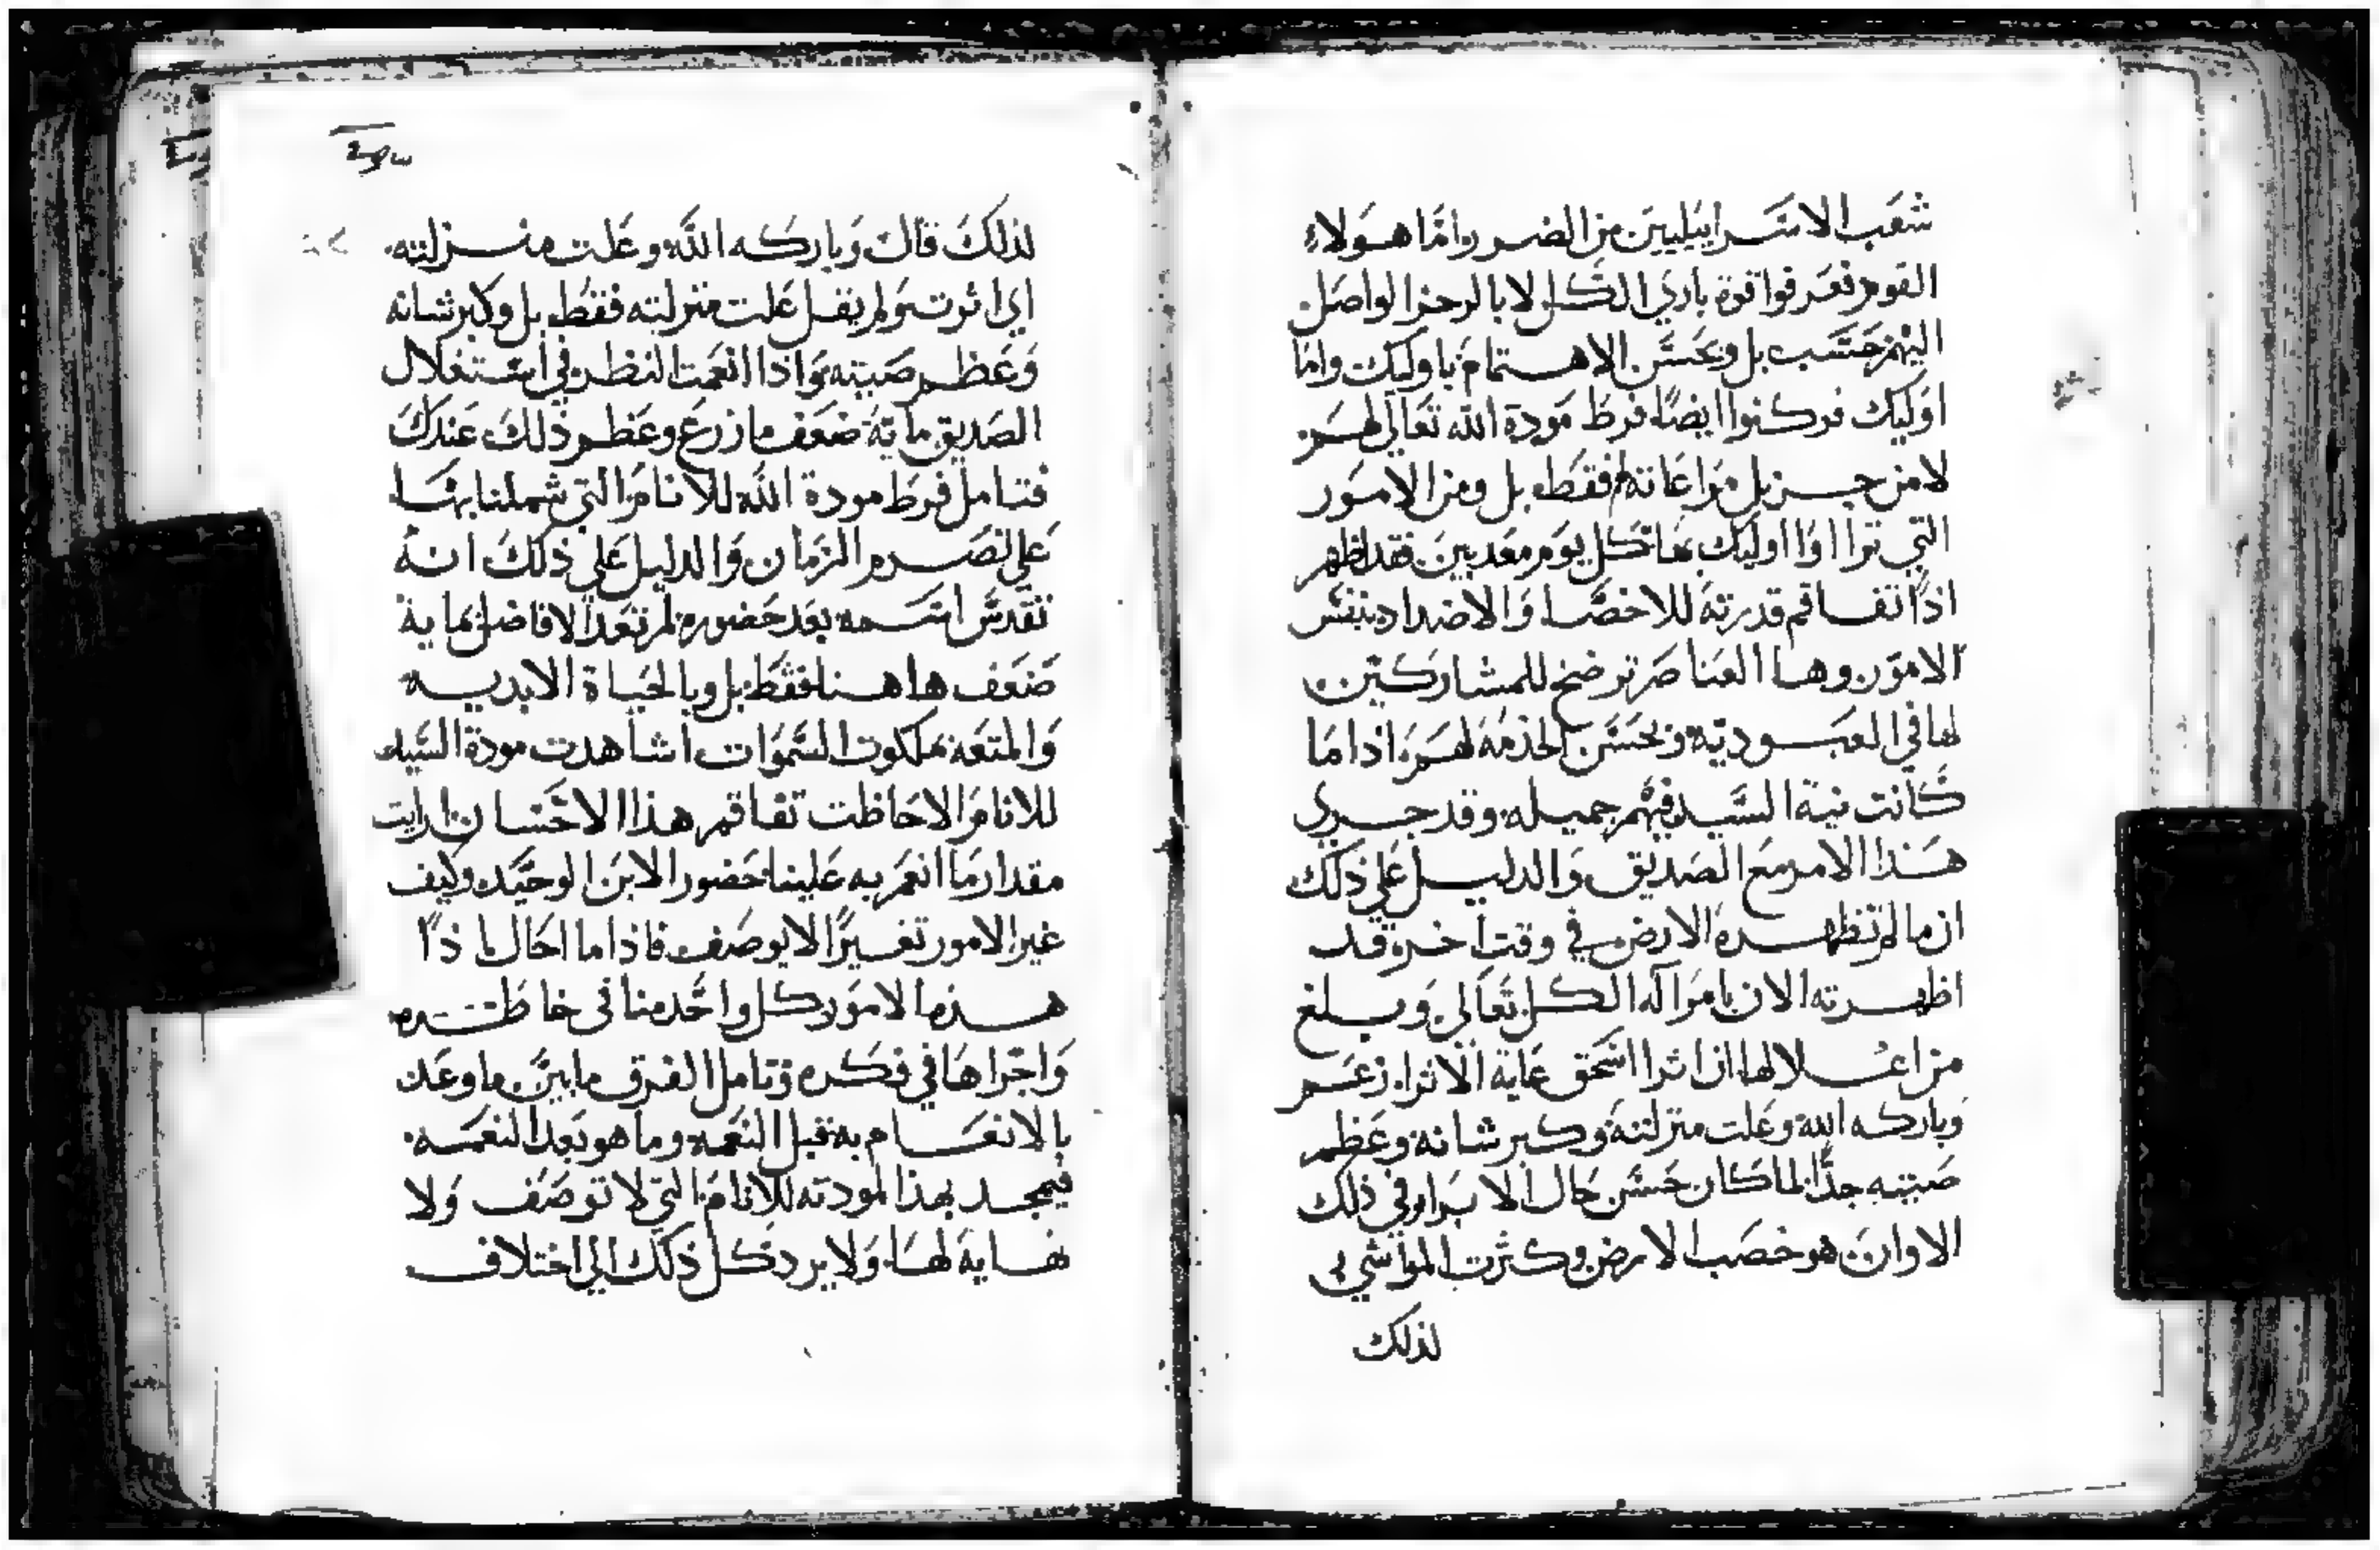 شعب الاسرايليين من الضر واما هولاء
القوم فعرفوا قوة باري الكل لا بالرجز الواصل
اليهم حسب بل وبحسن الاهتمام باوليك واما
اوليك فركنوا ايضا فرط مودة الله تعالي لهم
لا من جزيل مراعاته فقط بل ومن الامور
التي ترااوا اوليك بها كل يوم معدبين فقد اظهر
اذا تفاقم قدرته للاخصا والاضداد بنفس
الامور وها العناصر ترضخ للمشاركين
لها في العبودية وبحسن الخدمة لهم اذا ما
كانت نية السيد فيهم جميله وقد جري
هذا الامر مع الصديق والدليل علي ذلك
ان ما لم تظهره الارض في وقت اخر قد
اظهرته الان بامر اله الكل تعالي وبلغ
من اغلالها ان اثرا اسحق غاية الاثرا زعم
وباركه الله وعلت منزلته وكبر شانه وعظم
صيته جدا لما كان حسن حال الابرار في ذلك
الاوان هو خصب الارض وكثرت المواشي
لذلك
لذلك قال وباركه الله وعلت منزلته
اي اثرت ولم يقل علت منزلته فقط بل وكبر شانه
وعظم صيته واذا انعمت النظر في استغلال
الصديق ماية ضعف ما زرع وعظم ذلك عندك
فتامل فرط مودة الله للانام التي شملنا بها
علي تصرم الزمان والدليل علي ذلك انه
تقدس اسمه بعد حضوره لم تعد الافاضل بماية
ضعف هاهنا فقط بل وبالحياة الابديه
والمتعة بملكوت السموات اشاهدت مودة السيد
للانام الاحاظت تفاقم هذا الاحسان ارايت
مقدار ما انعم به علينا حضور الابن الوحيد وكيف
غير الامور تغييرا لا يوصف فاذا ما احال اذا
هذه الامور كل واحد منا في خاطره
واجراها في فكره وتامل الفرق ما بين ما وعد
بالانعام به قبل النعمه وما هو بعد النعمه
فيمجد بهذا المودته للانام التي لا توصف ولا
نهاية لها ولا يرد كل ذلك الي اختلاف